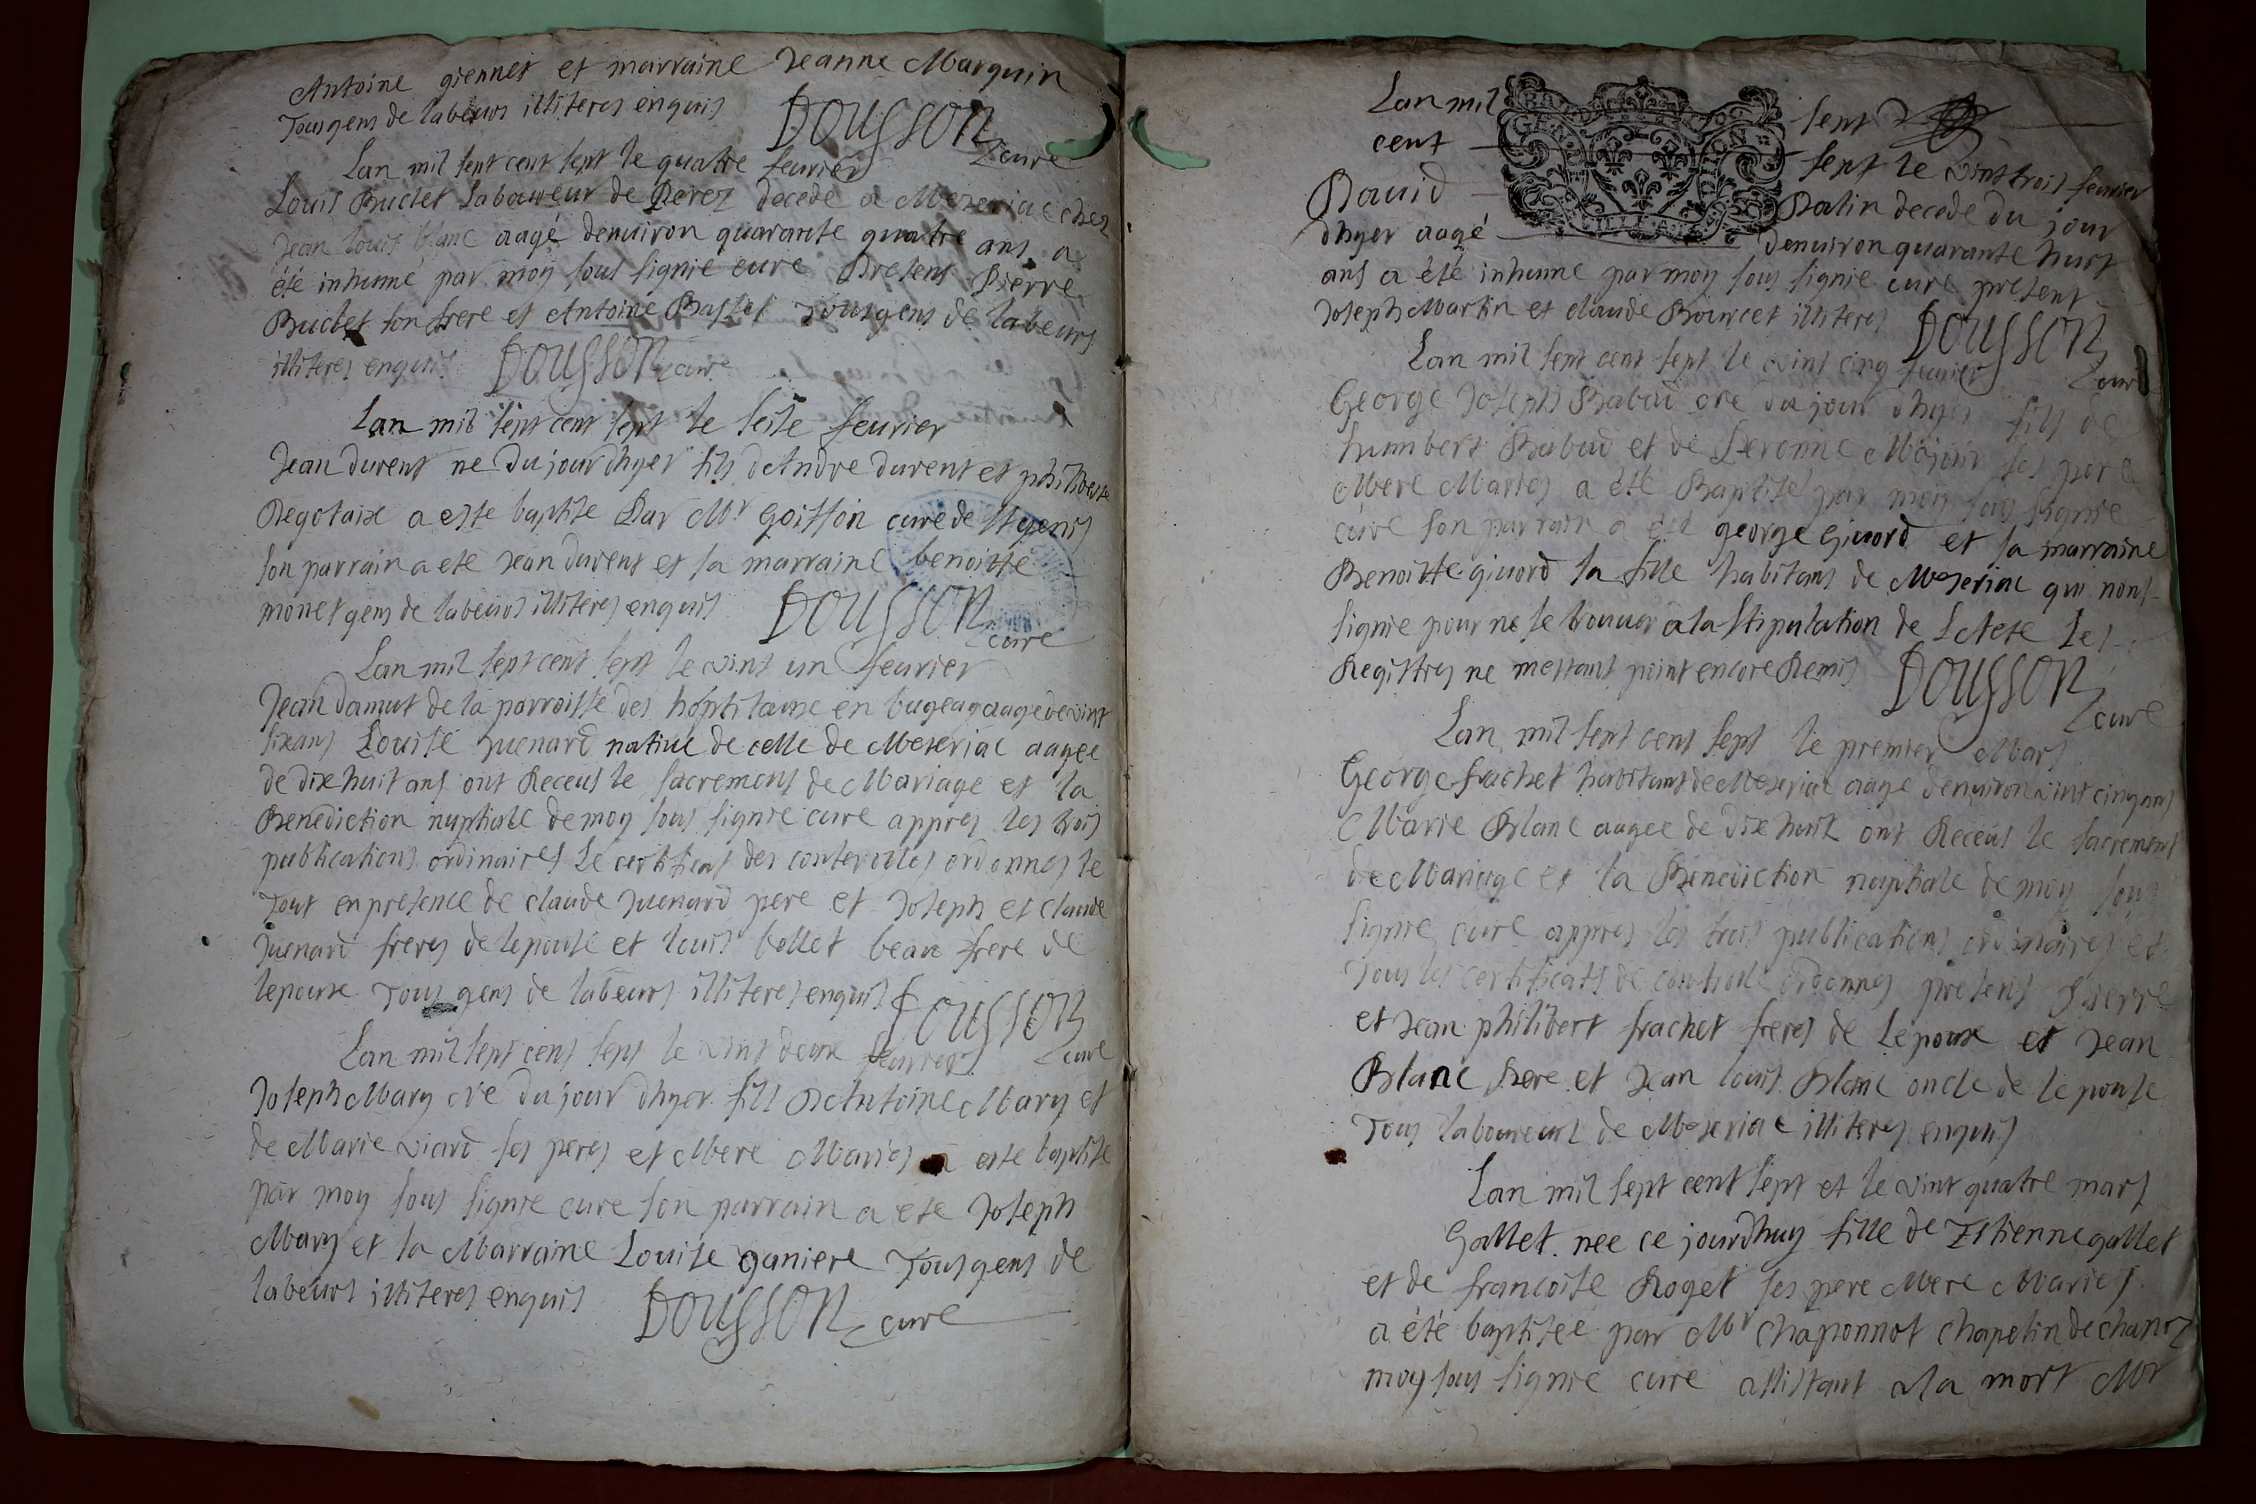 Antoine giennet et marraine Jeanne Marquin
Tous gens de labeurs illiteres enquis DOUSSON cure
Lan mil sept cent sept le quatre feurier
Louis Buclet laboureur de Perez decede a Meseriac chez
Jean louis blanc aagé denuiron quarante quatre ans a
été inhumé par moy sous signie cure Presens Pierre
Buclet son frere et Antoine Basset Tous gens de labeurs
illiteres enquis DOUSSON cure
Lan mil sept cent sept le seise feurier
Jean durent ne du jour dhyer fils dAndre durent et philiberte
Regotaix a este baptise Par Mr Goiffon cure de St genis
son parrain a ete Jean durent et sa marraine benoitte
monet gens de labeurs illiteres enquis DOUSSON cure
Lan mil sept cent sept le vint un feurier
Jean damut de la parroisse des hôpitaux en bugeag aage de vint
sixans Louise Juenard natiue de celle de Meseriac aagee
de dix huit ans ont Receus le sacrement de Mariage et la
Benediction nuptiale de moy sous signie cure appres les trois
publications ordinaires Le certificat des conterolles ordonnes le
Tout en presence de claude Juenard pere et Joseph et claude
Juenard freres de lepouse et louis bollet beau frere de
lepoux Tous gens de labeurs illiteres enquis DOUSSON
Lan mil sept cent sept le vint deux feurier cure
Joseph Mary né du jour dhyer fils DAntoine Mary et
de Marie viard ses peres et Mere Maries a este baptise
par moy sous signie cure son parrain a ete Joseph
Mary et la Marraine Louise ganiere Tous gens de
labeurs illiteres enquis DOUSSON cure
Lan mil sept
cent sept le vint trois feurier
Dauid Ratin decede du jour
dhyer aagé denuiron quarante huit
ans a été inhume par moy sous signie cure present
Joseph Martin et claude Boincet illiteres DOUSSON
Lan mil sept cent sept le vint cinq feurier cure
George Joseph Rabud né du jour dhyer fils de
humbert Rabud et de Peronne Majour ses pere
Mere Maries a été Baptisé par moy sous signie
cure son parrain a été george giuord et sa marraine
Benoitte giuord sa fille habitans de Meseriac qui nont
signie pour ne se trouuer a la stipulation de LActe Les
Registres ne mestans point encore Remis DOUSSON
cure
Lan mil sept cent sept le premier Mars
George frachet habitant de Meseriac aage denuiron vint cinq ans
Marie Blanc aagee de dix huit ont Receus le sacrement
de Mariage et la Benediction nuptiale de moy sous
signie cure appres les trois publications ordinaires et
Tous les certificats de controlle ordonnes presens Pierre
et Jean philibert frachet freres de Lepoux et Jean
Blanc Pere et Jean louis Blanc oncle de lepouse
Tous laboureurs de Meseriac illiteres enquis
Lan mil sept cent sept et le vint quatre mars
Gallet nee ce jourdhuy fille de Estienne gallet
et de francoise Roget ses pere Mere Maries
a été baptisee par Mr chaponnot chapelin de chanoz
moy sous signie cure assistant a la mort Mr